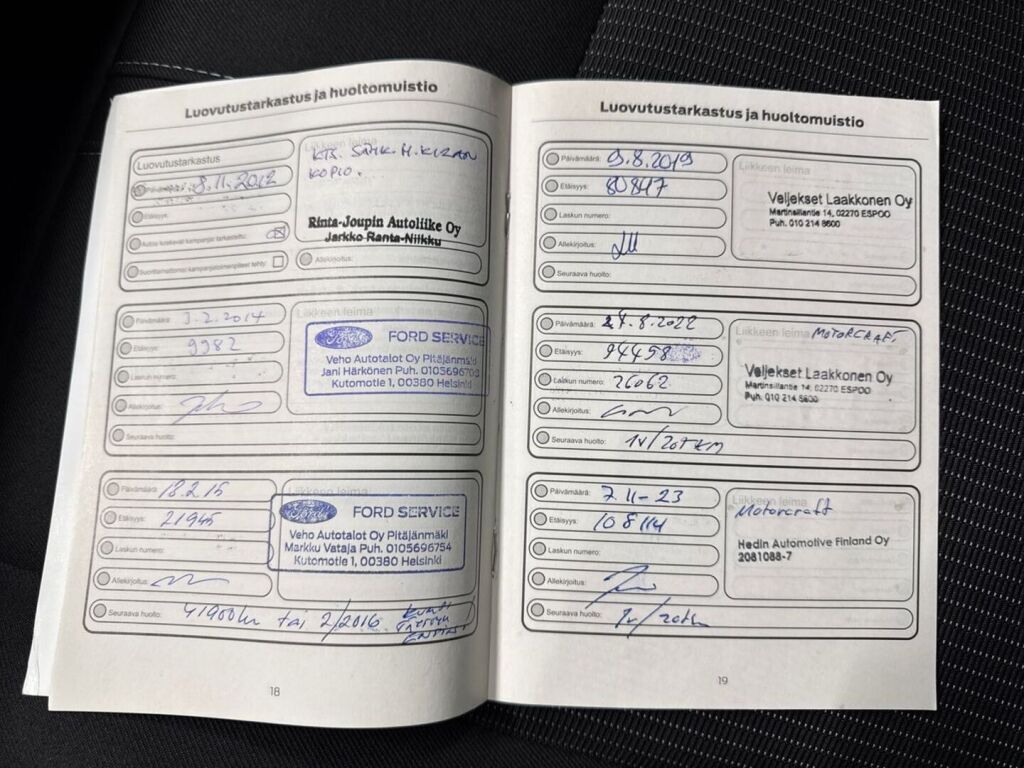 Luovutustarkastus ja huoltomuistio
Luovutustarkastus
Liikkeen leima
8.11.2012
KTS. SÄHK. H.KIRJAN
KOPIO.
Etäisyys:
Rinta-Joupin Autoliike Oy
Jarkko Ranta-Niilkku
Autoa koskevat kampanjat tarkastettu
Suorittamattomat kampanjatoimenpiteet tehty:
Allekirjoitus:
Päivämäärä: 3.2.2014
Liikkeen leima
Etäisyys: 9982
Ford
FORD SERVICE
Veho Autotalot Oy Pitäjänmäki
Jani Härkönen Puh. 0105696703
Kutomotie 1, 00380 Helsinki
Laskun numero:
Allekirjoitus:
Seuraava huolto:
Päivämäärä: 18.2.15
Liikkeen leima
Etäisyys: 21945
Ford
FORD SERVICE
Veho Autotalot Oy Pitäjänmäki
Markku Vataja Puh. 0105696754
Kutomotie 1, 00380 Helsinki
Laskun numero:
Allekirjoitus:
Seuraava huolto: 41900km tai 2/2016 KUMPI
TÄYTTYY
ENSIN
18
Luovutustarkastus ja huoltomuistio
Päivämäärä: 9.8.2019
Liikkeen leima
Etäisyys: 80847
Veljekset Laakkonen Oy
Martinsillantie 14, 02270 ESPOO
Puh. 010 214 8600
Laskun numero:
Allekirjoitus:
Seuraava huolto:
Päivämäärä: 24.8.2022
Liikkeen leima MOTORCRAFT
Etäisyys: 94458
Veljekset Laakkonen Oy
Martinsillantie 14, 02270 ESPOO
Puh. 010 214 8600
Laskun numero: 26062
Allekirjoitus:
Seuraava huolto: 1v/20TKM
Päivämäärä: 7.11-23
Liikkeen leima
Motorcraft
Etäisyys: 108114
Hedin Automotive Finland Oy
2081088-7
Laskun numero:
Allekirjoitus:
Seuraava huolto: 1v/20tk
19